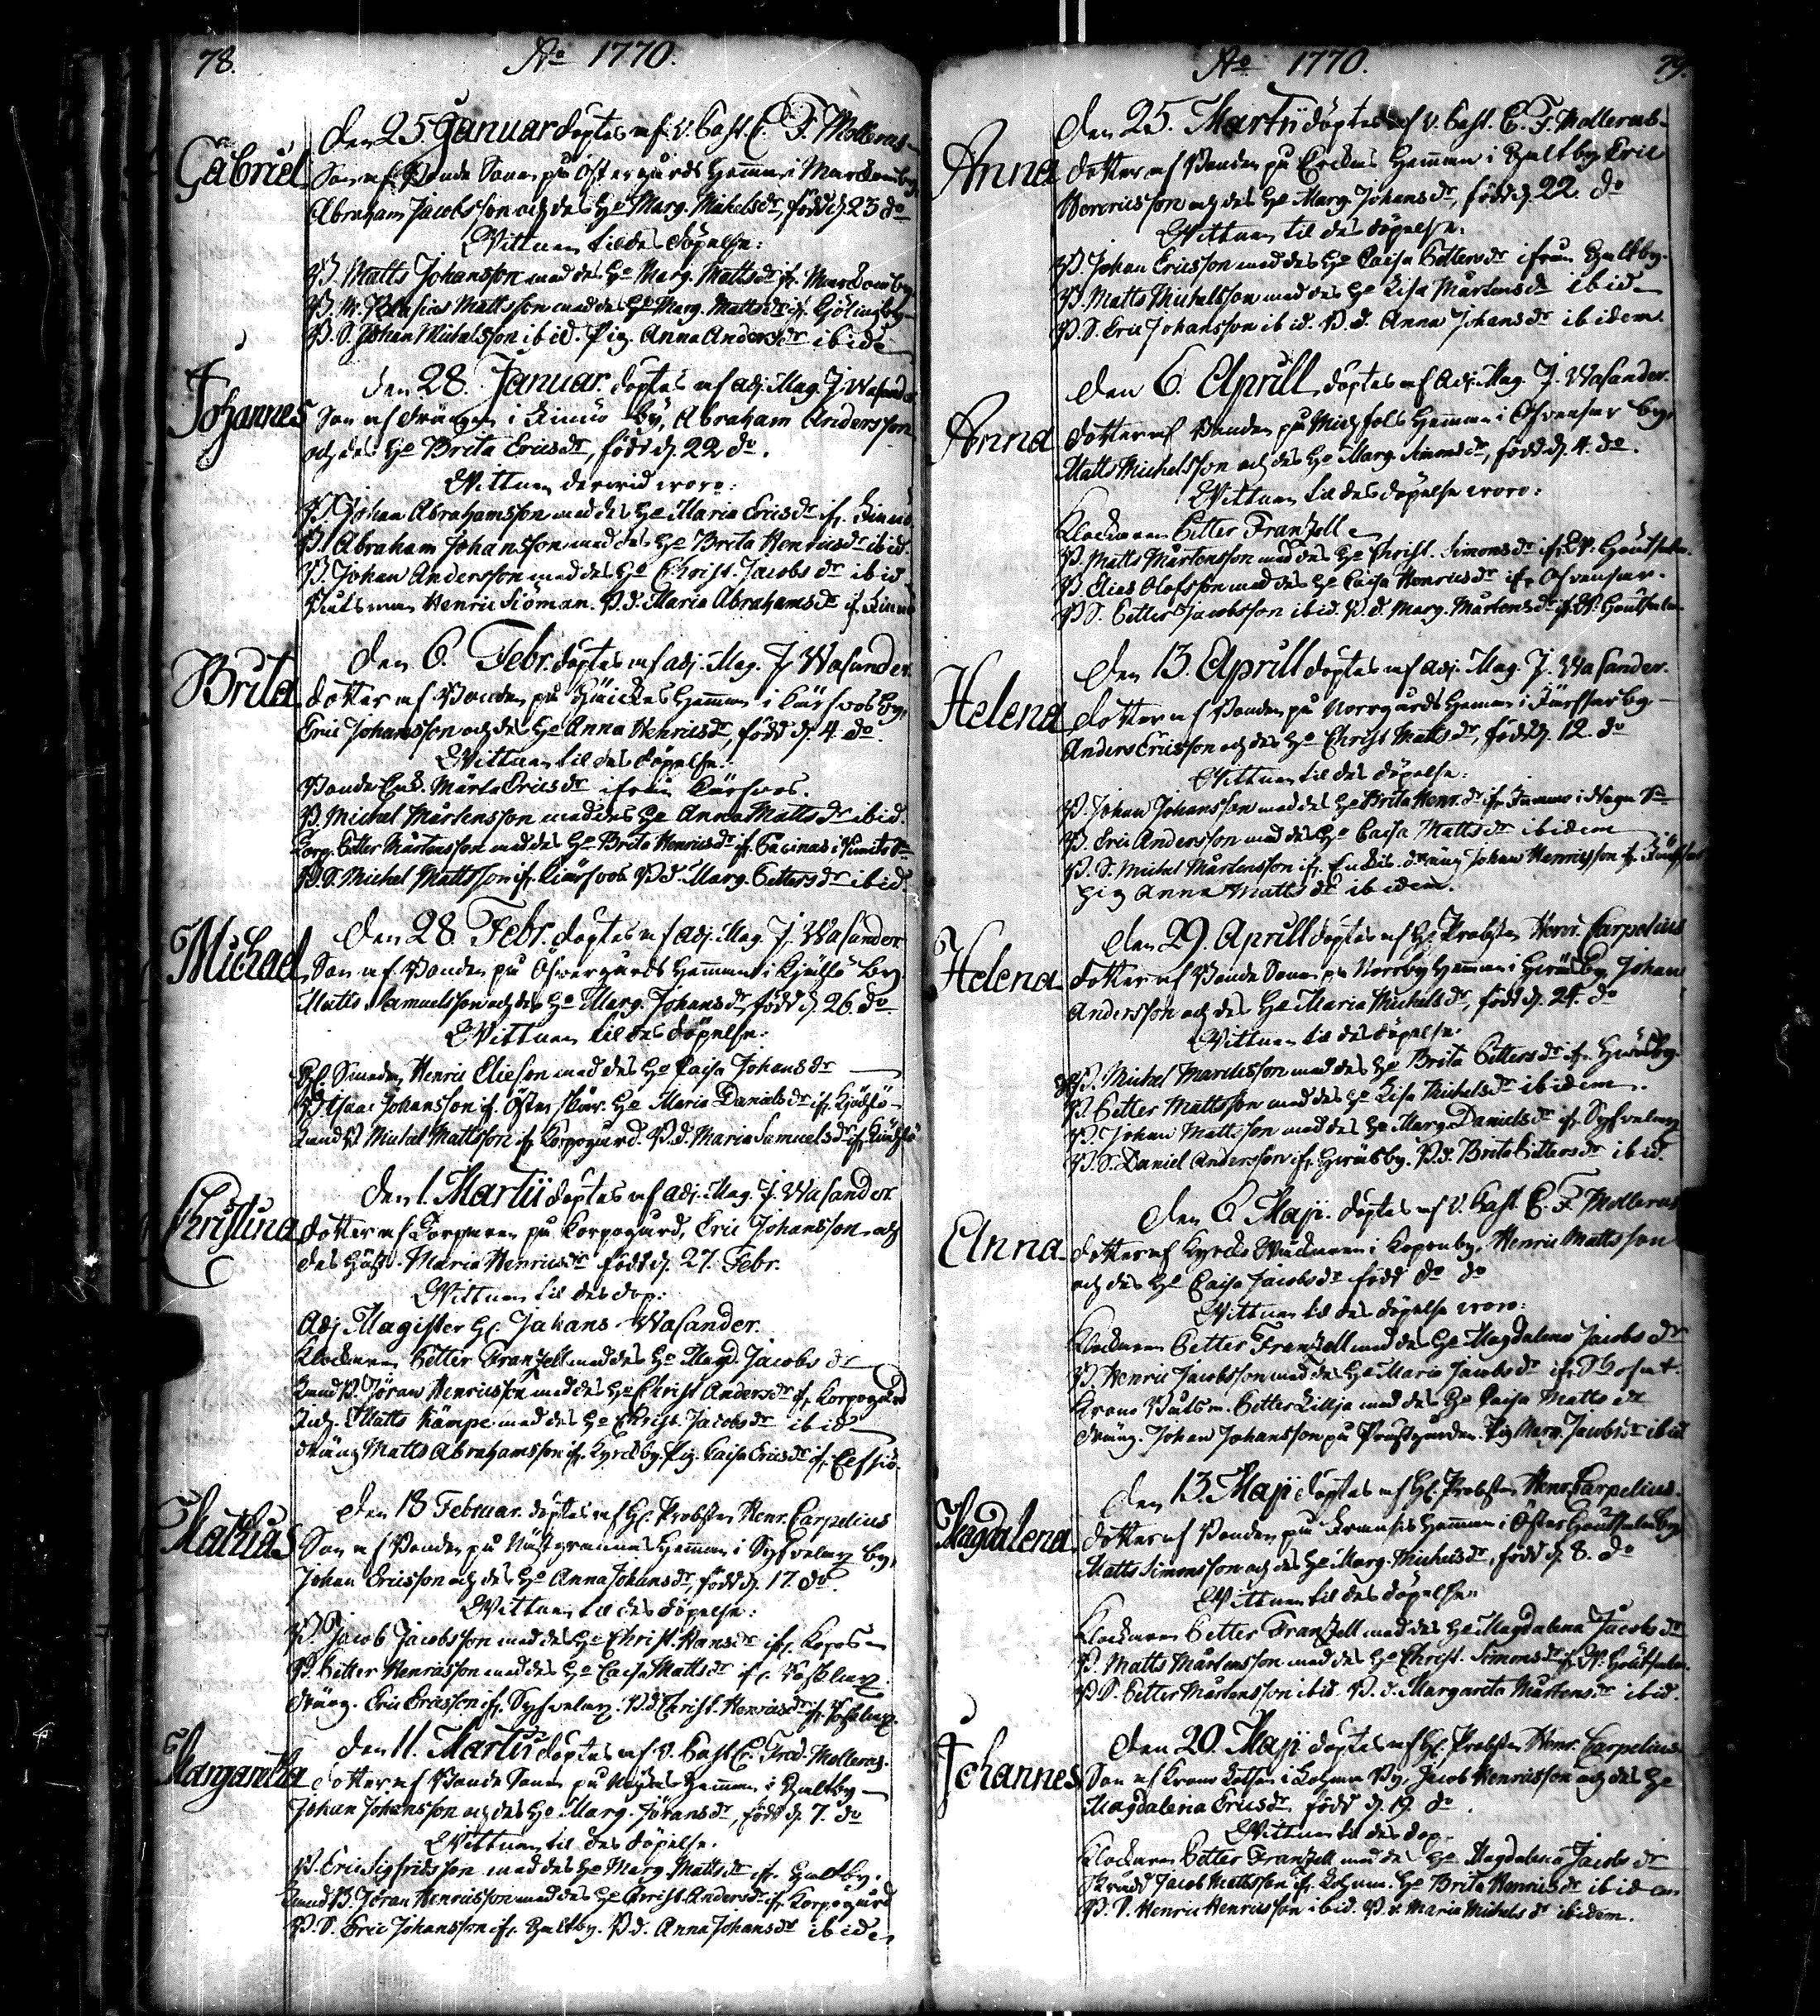 78.
Ao 1770.
Gabriel
Den 25 Januar döptes af v. Past. C. F. Molleras
Son af Bonde Sonen på Östergårds Hemman i
Abraham Jacobsson och des Ho Marg. Michelsdr, född d. 23 do
Wittnen til des döpelse:
B. Matts Johansson med des Ho Marg. Mattsdr ifr.
B. Mattsson med des Ho Marg. Mattsdr ifr.
B. S. Johan Michelsson ibid. Pig. Anna Andersdr ibid
Johannes
Den 28. Januar. döptes af adj. Mag. J. Wasander
Son af drängen i by, Abraham Andersson
och des Ho Brita Ericsdr, född d. 22 do.
Wittnen derwid woro:
B. Johan Abrahamsson med des Ho Maria Ericsdr ifr.
B. Abraham Johansson med des Ho Brita Henricsdr ibid.
B. Johan Andersson med des Ho Christ. Jacobsdr ibid
Båtsman Henric Siöman. B. d. Maria Abrahamsdr ifr.
Brita
Den 6. Febr. döptes af adj. Mag. J. Wasander.
dotter af Bonden på Hemman i by,
Eric Johansson och des Ho Anna Henricsdr, född d. 4. do.
Wittnen til des döpelse:
Bonde Enk. Märta Ericsdr ifrån
B. Michel Mårtensson med des Ho Anna Mattsdr ibid.
Korp. Petter Mårtensson med des Ho Brita Henricsdr ifr.
B. S. Michel Mattsson ifr. B. d. Marg. Pettersdr ibid
Michael
Den 28 Febr. döptes af adj. Mag. J. Wasander
Son af Bonden på Öfwergårds Hemman i by
Matts Samuelsson och des Ho Marg. Johansdr, född d. 26. do
Wittnen til des döpelse:
Smeden Henric Elieson med des Ho Caisa Johansdr
B. Isaac Johansson ifr. Österskär. Ho Maria Danielsdr ifr.
Michel Mattsson ifr. Korpogård. B. d. Maria Samuelsdr ifr.
Christina
Den 1. Martii döptes af adj. Mag. J. Wasander.
dotter af Torparen på Korpogård, Eric Johansson och
des Hust. Maria Henricsdr född d. 27. Febr.
Wittnen til des dop:
Adj. Magister Hr. Johans Wasander.
Klockaren Petter Frantzell med des Ho Magd. Jacobsdr
B. Jöran Henricsson med des Ho Christ Andersdr ifr. Korpogård
Matts Kämpe med des Ho Christ. Jacobsdr ibid
dräng Matts Abrahamsson ifr. Kyrckby. Pig. Caisa Ericsdr ifr.
Mathias
Den 18 Februar. döptes af Hr. Probsten Henr. Carpelius
Son af Bonden på Hemman i by,
Johan Ericsson och des Ho Anna Johansdr, född d. 17. do.
Wittnen til des döpelse:
B. Jacob Jacobsson med des Ho Christ. Hansdr ifr.
B. Petter Henricsson med des Ho Caisa Mattsdr ifr.
Dräng. Eric Ericsson ifr. B. d. Christ. Henricsdr ifr.
Margaretha
Den 11. Martii döptes af v. Past. C. Fred. Molleras.
dotter af Bonde Sonen på Hemman i
Johan Johansson och des Ho Marg. Jöransdr, född d. 7. do
Wittnen til des döpelse.
B. Eric Sigfridsson med des Ho Marg. Mattsdr ifr.
B. Jöran Henricsson med des Ho Christ. Andersdr ifr. Korpogård
B. S. Eric Johansson ifr. B. d. Anna Johansdr ibid
Ao 1770.
79.
Anna
Den 25. Martii döptes af v. Past. C. F. Molleras
dotter af Bonden på Hemman i Eric
Henricsson och des Ho Marg. Johansdr, född d. 22. do
Wittnen til des döpelse:
B. Johan Ericsson med des Ho Caisa Pettersdr ifrån
B. Matts Michelsson med des Ho Lisa Mårtensdr ibid
B. S. Eric Johansson ibid. B. d. Anna Johansdr ibidem.
Anna
Den 6. Aprill döptes af Adj. Mag. J. Wasander.
dotter af Bonden på Hemman i by,
Matts Michelsson och des Ho Marg. Simonsdr, född d. 4. do.
Wittnen til des döpelse woro:
Klockaren Petter Frantzell
B. Matts Mårtensson med des Ho Christ. Simonsdr ifr.
B. Elias Olofsson med des Ho Caisa Henricsdr ifr.
B. S. Petter Jacobsson ibid. B. d. Marg. Mårtensdr ifr.
Helena
Den 13. Aprill döptes af adj. Mag. J. Wasander.
dotter af Bonden på Norrgårds Hemman i by
Anders Ericsson och des Ho Christ Mattsdr, född d. 12. do
Wittnen til des döpelse:
B. Johan Johansson med des Ho Brita Henr.dr ifr.
B. Eric Andersson med des Ho Caisa Mattsdr ibidem
B. S. Michel Mårtensson ifr. dräng Johan Henricsson ifr.
Pig Anna Mattsdr ibidem.
Helena
Den 29. Aprill döptes af Hr. Probsten Henr. Carpelius
dotter af Bonde Sonen på Norrby Hemman i Johan
Andersson och des Ho Maria Michelsdr, född d. 24. do
Wittnen til des döpelse:
B. Michel Marcusson med des Ho Brita Pettersdr ifr.
B. Petter Mattsson med des Ho Lisa Michelsdr ibidem.
B. Johan Mattsson med des Ho Marg. Danielsdr ifr.
B. S. Daniel Andersson ifr. B. d. Brita Pettersdr ibid.
Anna
Den 6 Maji. döptes af v. Past. C. F. Molleras
dotter af Kyrcko i Henric Mattsson
och des Ho Caisa Jacobsdr född do do
Wittnen til des döpelse woro:
Klockaren Petter Frantzell med des Ho Magdalena Jacobsdr
B. Henric Jacobsson med des Ho Maria Jacobsdr ifr.
Krono Båtsm. Petter Lillja med des Ho Caisa Mattsdr
dräng. Johan Johansson på Prästgården. Pig Marg. Jacobsdr ibid
Magdalena
Den 13. Maji döptes af Hr. Probsten Henr. Carpelius.
dotter af Bonden på Hemman i Öster
Matts Simonsson och des Ho Marg. Michelsdr, född d. 8. do
Wittnen til des döpelse:
Klockaren Petter Frantzell med des Ho Magdalena Jacobsdr
B. Matts Mårtensson med des Ho Christ. Simonsdr ifr.
B. S. Petter Mårtensson ibid. B. d. Margareta Mårtensdr ibid.
Johannes
Den 20. Maji döptes af Hr. Probsten Henr. Carpelius
Son af Krono i By, Jacob Henricsson och des Ho
Magdalena Ericsdr född d. 19. do.
Wittnen til des dop.
Klockaren Petter Frantzell med des Ho Magdalena Jacobsdr
Jacob Mattsson ifr. Ho Brita Henricsdr ibidem
B. S. Henric Henricsson ibid. B. d. Maria Michelsdr ibidem.